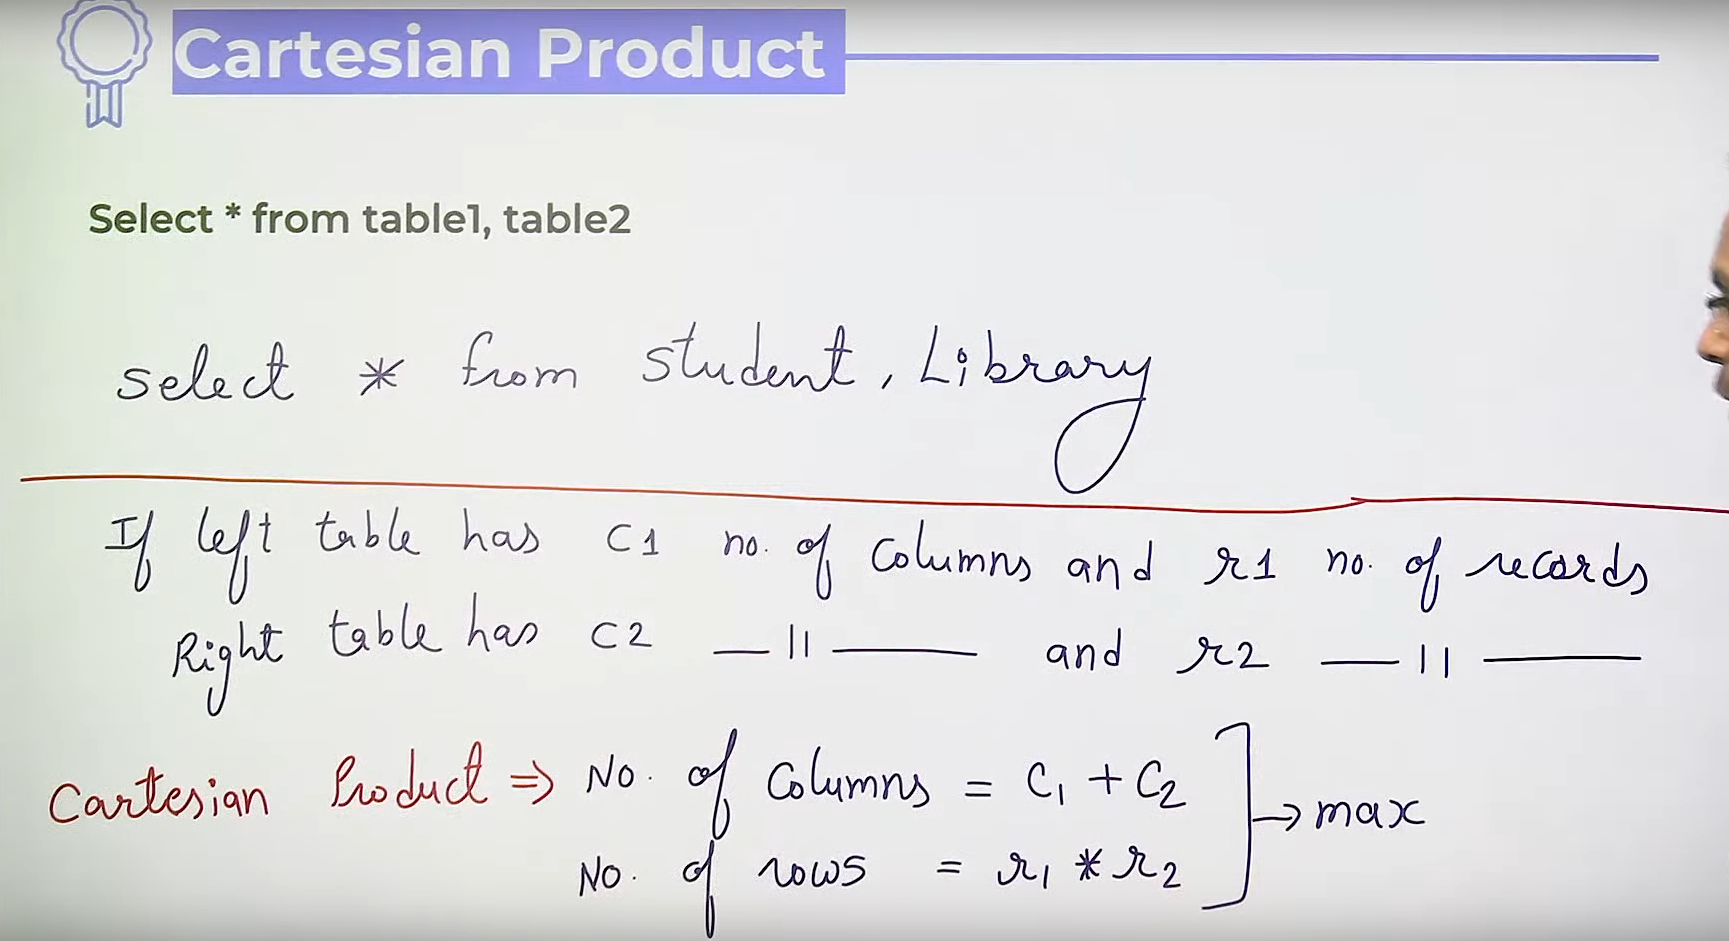 Cartesian Product
Select * from table1, table2
select * from student, Library
If left table has C1 no. of columns and r1 no. of records
Right table has C2 —||— and r2 —||—
Cartesian Product ⇒ No. of Columns = C1 + C2
→ max
No. of rows = r1 * r2